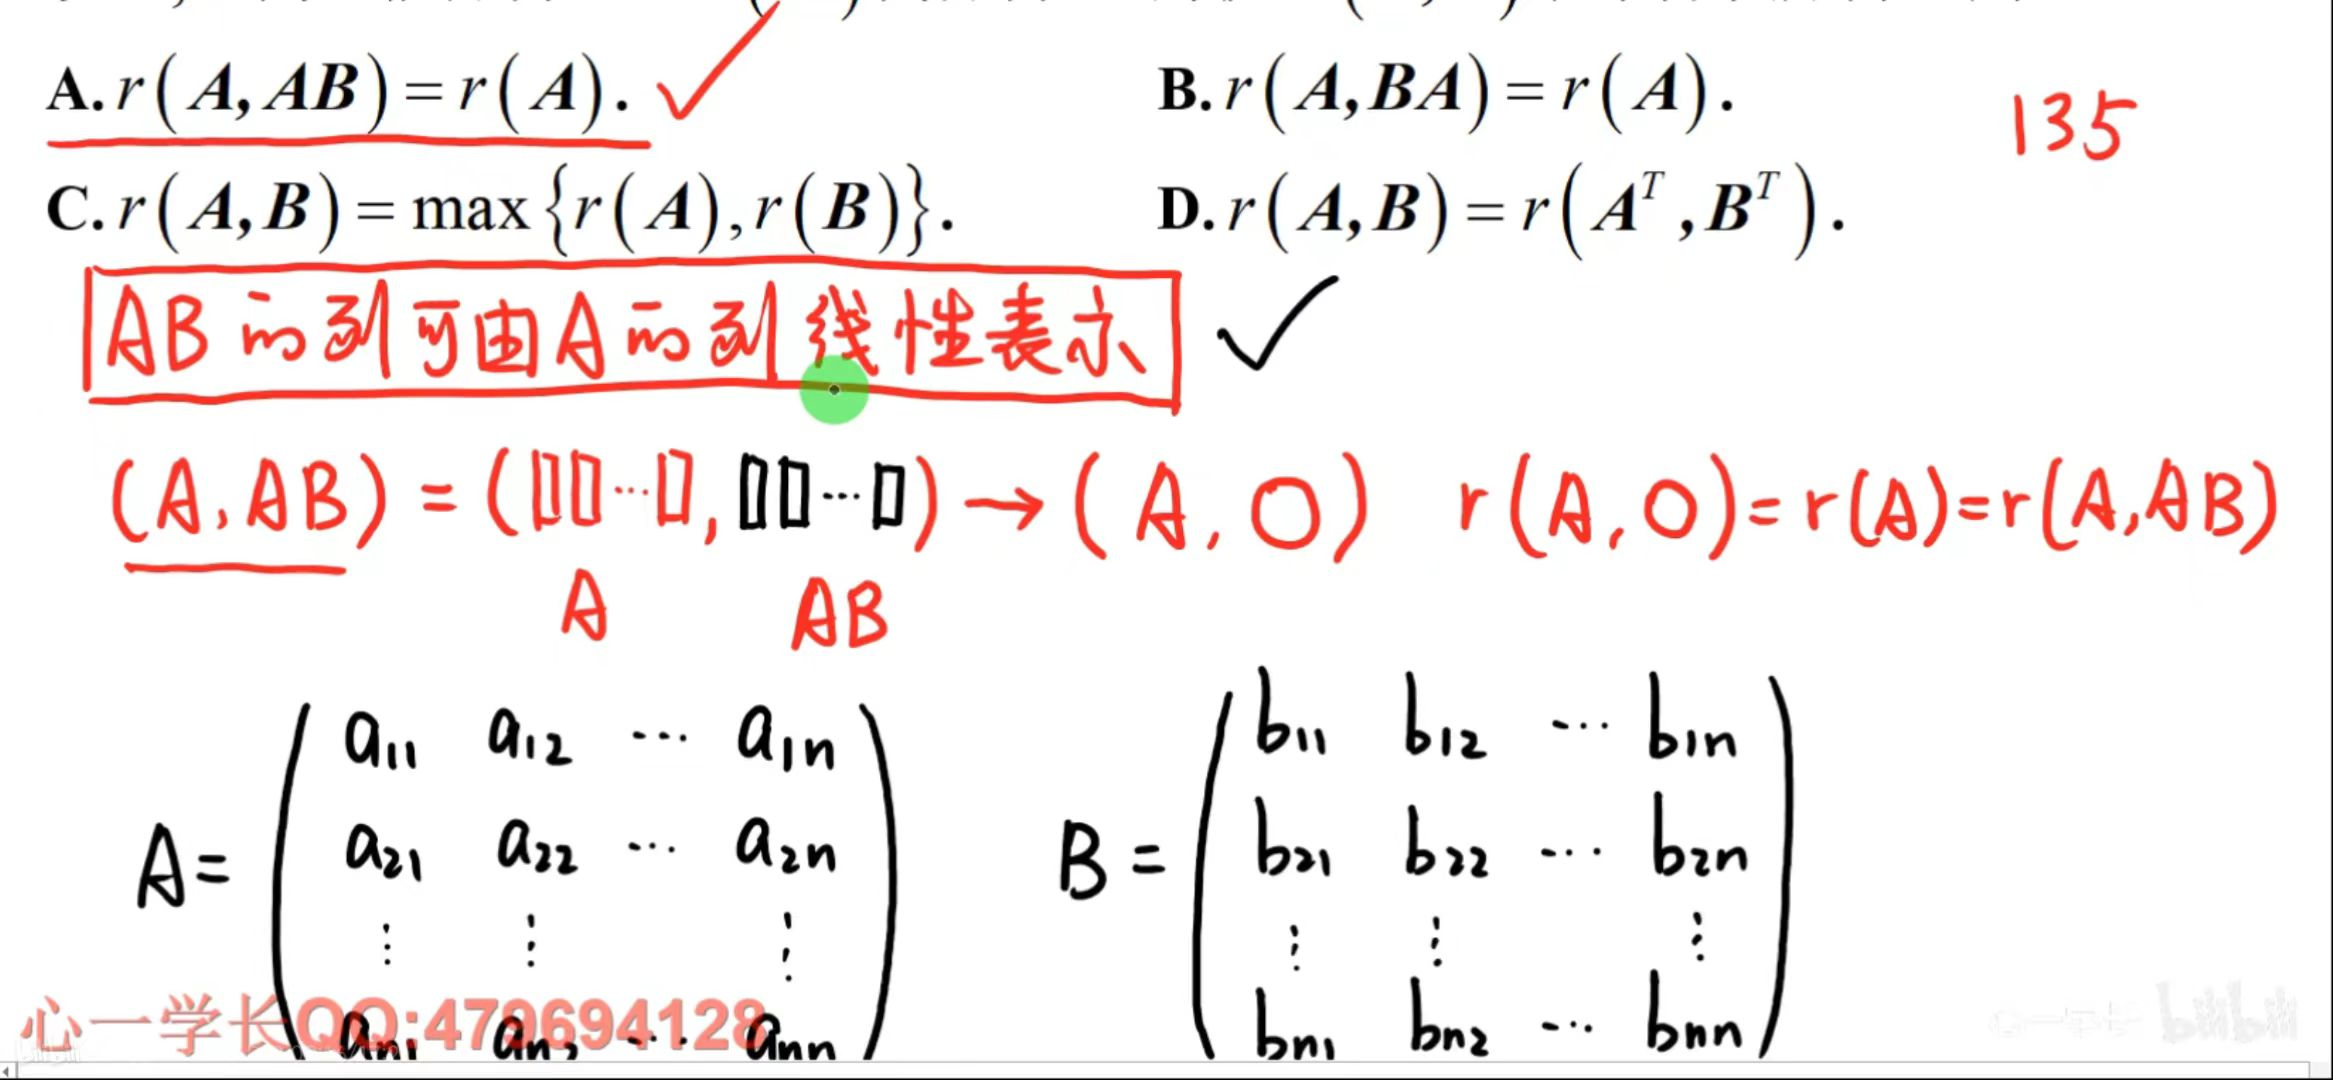 A. r(A, AB) = r(A). B. r(A, BA) = r(A). 135
C. r(A, B) = max{r(A), r(B)}. D. r(A, B) = r(Aᵀ, Bᵀ).
AB的列可由A的列线性表示
(A, AB) = (▯▯···▯, ▯▯···▯) → (A, O) r(A, O) = r(A) = r(A, AB)
A AB
A= ( a₁₁ a₁₂ ··· a₁ₙ B = ( b₁₁ b₁₂ ··· b₁ₙ
a₂₁ a₂₂ ··· a₂ₙ b₂₁ b₂₂ ··· b₂ₙ
⋮ ⋮ ⋮ ⋮ ⋮ ⋮
aₙ₁ aₙ₂ ··· aₙₙ ) bₙ₁ bₙ₂ ··· bₙₙ )
心一学长QQ:479694128
bilibili